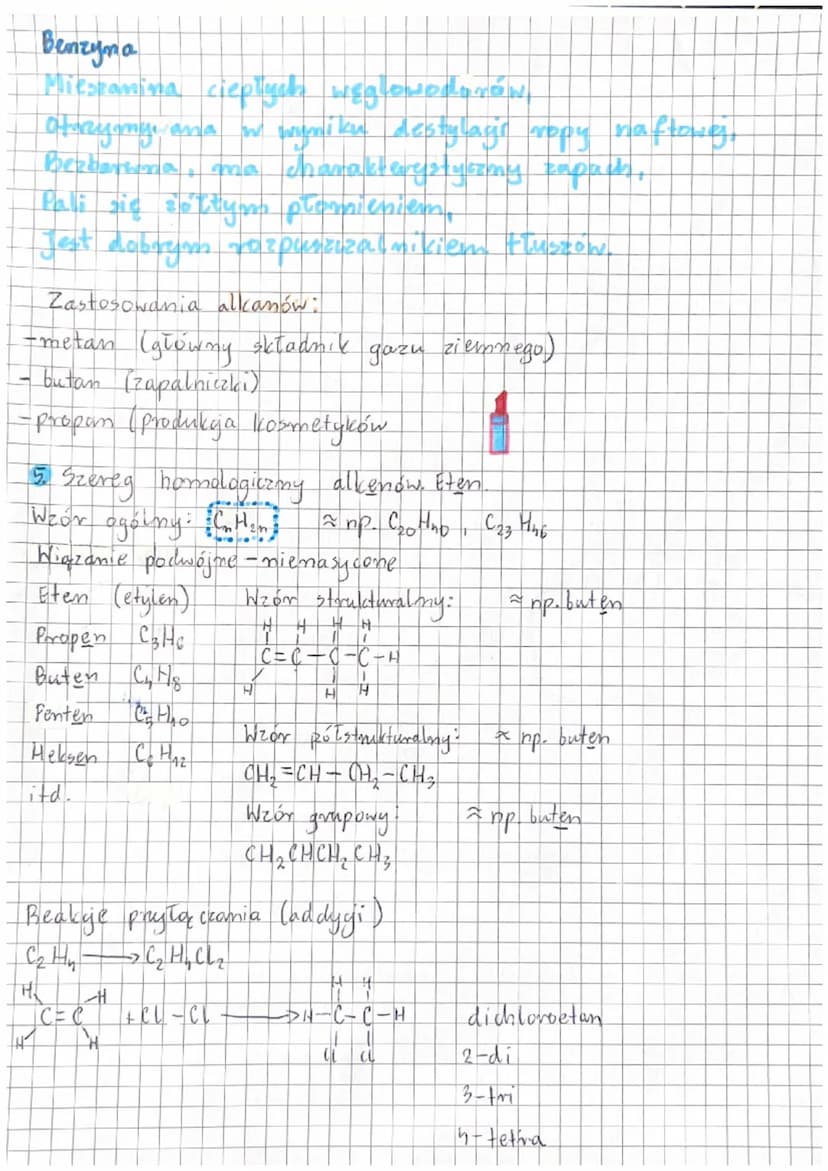 Benzyna
Mieszanina ciepłych węglowodorów,
otrzymywana w wyniku destylacji ropy naftowej.
Bezbarwna, ma charakterystyczny zapach,
Pali się żółtym płomieniem,
Jest dobrym rozpuszczalnikiem tłuszów.
Zastosowania alkanów:
-metan (główny składnik gazu ziemnego)
- butan (zapalniczki)
-propan (produkcja kosmetyków
5. Szereg homologiczny alkenów. Eten.
Wzór ogólny: CnH2n ≈ np. C20H40, C23H46
Wiązanie podwójne - nienasycone
Eten (etylen) Wzór strukturalny: ≈ np. buten
Propen C3H6
H H H H
C=C-C-C-H
H H H
Buten C4H8
Penten C5H10
Heksen C6H12
itd.
Wzór półstrukturalny: ≈ np. buten
CH2=CH-CH2-CH3
Wzór grupowy: ≈ np. buten
CH2CHCH2CH3
Reakcje przyłączania (addycji)
C2H4 → C2H4Cl2
H H H H
C=C + Cl-Cl → H-C-C-H dichloroetan
H H Cl Cl
2-di
3-tri
4-tetra